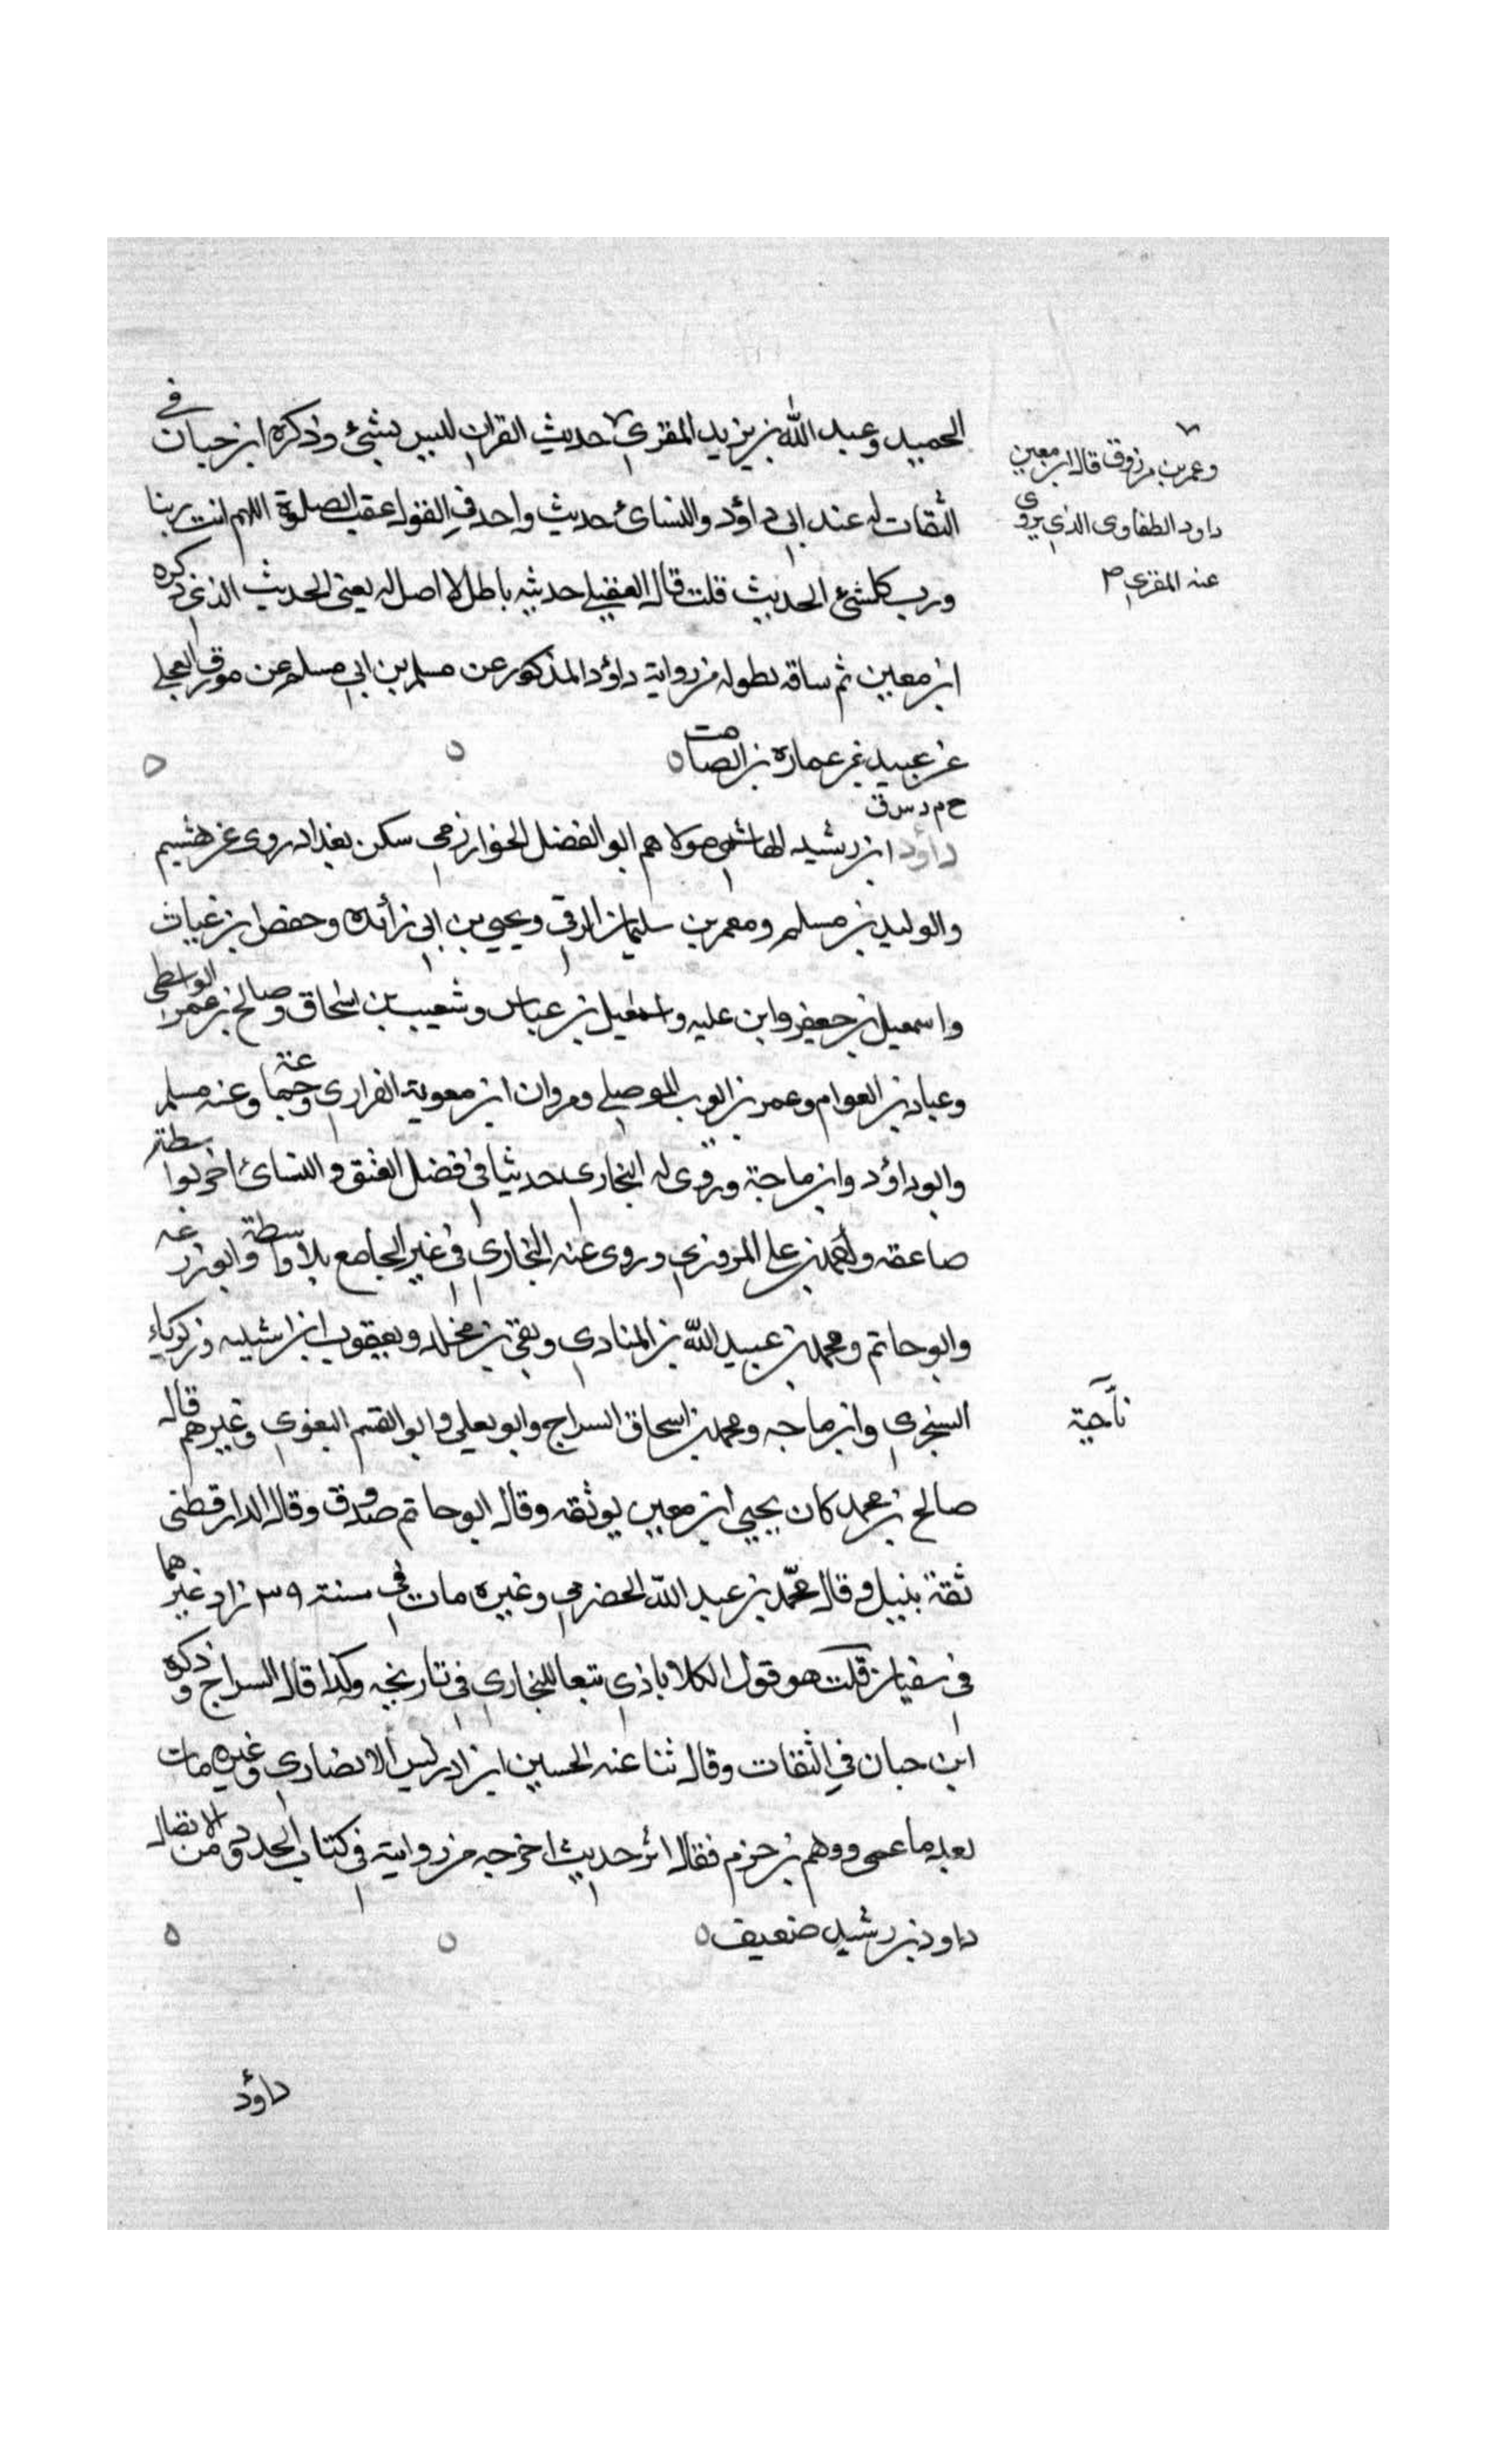 الحميد وعبد الله بن يزيد المقري حديث القران ليس بشئ وذكره ابن حبان في
الثقات له عند ابي داؤد والنسائ حديث واحد في القول عقب الصلوة اللهم انت ربنا
ورب كلشئ الحديث قلت قال العقيلي حديثه باطل لا اصل له يعني الحديث الذي ذكره
ابن معين ثم ساقه بطوله من رواية داؤد المذكور عن مسلم بن ابي مسلم عن مورق العجلي
عن عبيد بن عمير عن عبادة بن الصامت
وعمر بن مرزوق قال ابن معين
داود الطفاوى الذي يروى
عنه المقري
خ م د س ق
داؤد ابن رشيد الهاشمي مولاهم ابو الفضل الخوارزمي سكن بغداد روى عن هشيم
والوليد بن مسلم ومعمر بن سليمان الرقي ويحيى بن ابي زائده وحفص ابن غياث
واسمعيل بن جعفر وابن عليه واسمعيل بن عياش وشعيب بن اسحاق وصالح بن عمر الواسطي
وعباد بن العوام وعمر بن ايوب الموصلي ومروان ابن معوية الفزاري وجماعة وعنه مسلم
وابو داؤد وابن ماجة وروى له البخاري حديثا في فضل العتق والنسائ اخر بواسطة
صاعقه واحمد بن علي المروزي وروى عنه البخاري في غير الجامع بلا واسطة وابو زرعه
وابو حاتم ومحمد بن عبيد الله بن المنادي وبقي بن مخلد ويعقوب ابن شيبه وزكرياء
السنجري وابن ماجه ومحمد بن اسحاق السراج وابو يعلي وابو القسم البغوي وغيرهم قال
ناجية
صالح بن محمد كان يحيي ابن معين يوثقه وقال ابو حاتم صدوق وقال الدارقطني
ثقة نبيل وقال محمد بن عبد الله الحضرمي وغيره مات في سنة ٣٩ زاد غيرهما
في شعبان قلت هو قول الكلاباذي تبعا للبخاري في تاريخه وكذا قال السراج وذكره
ابن حبان في الثقات وقال ثنا عنه الحسين ابن ادريس الانصاري وغيره مات
بعد ما عمى ووهم بن حزم فقال اثر حديث اخرجه من روايته في كتاب الحدود من الاتصال
داود بن رشيد ضعيف
داؤد